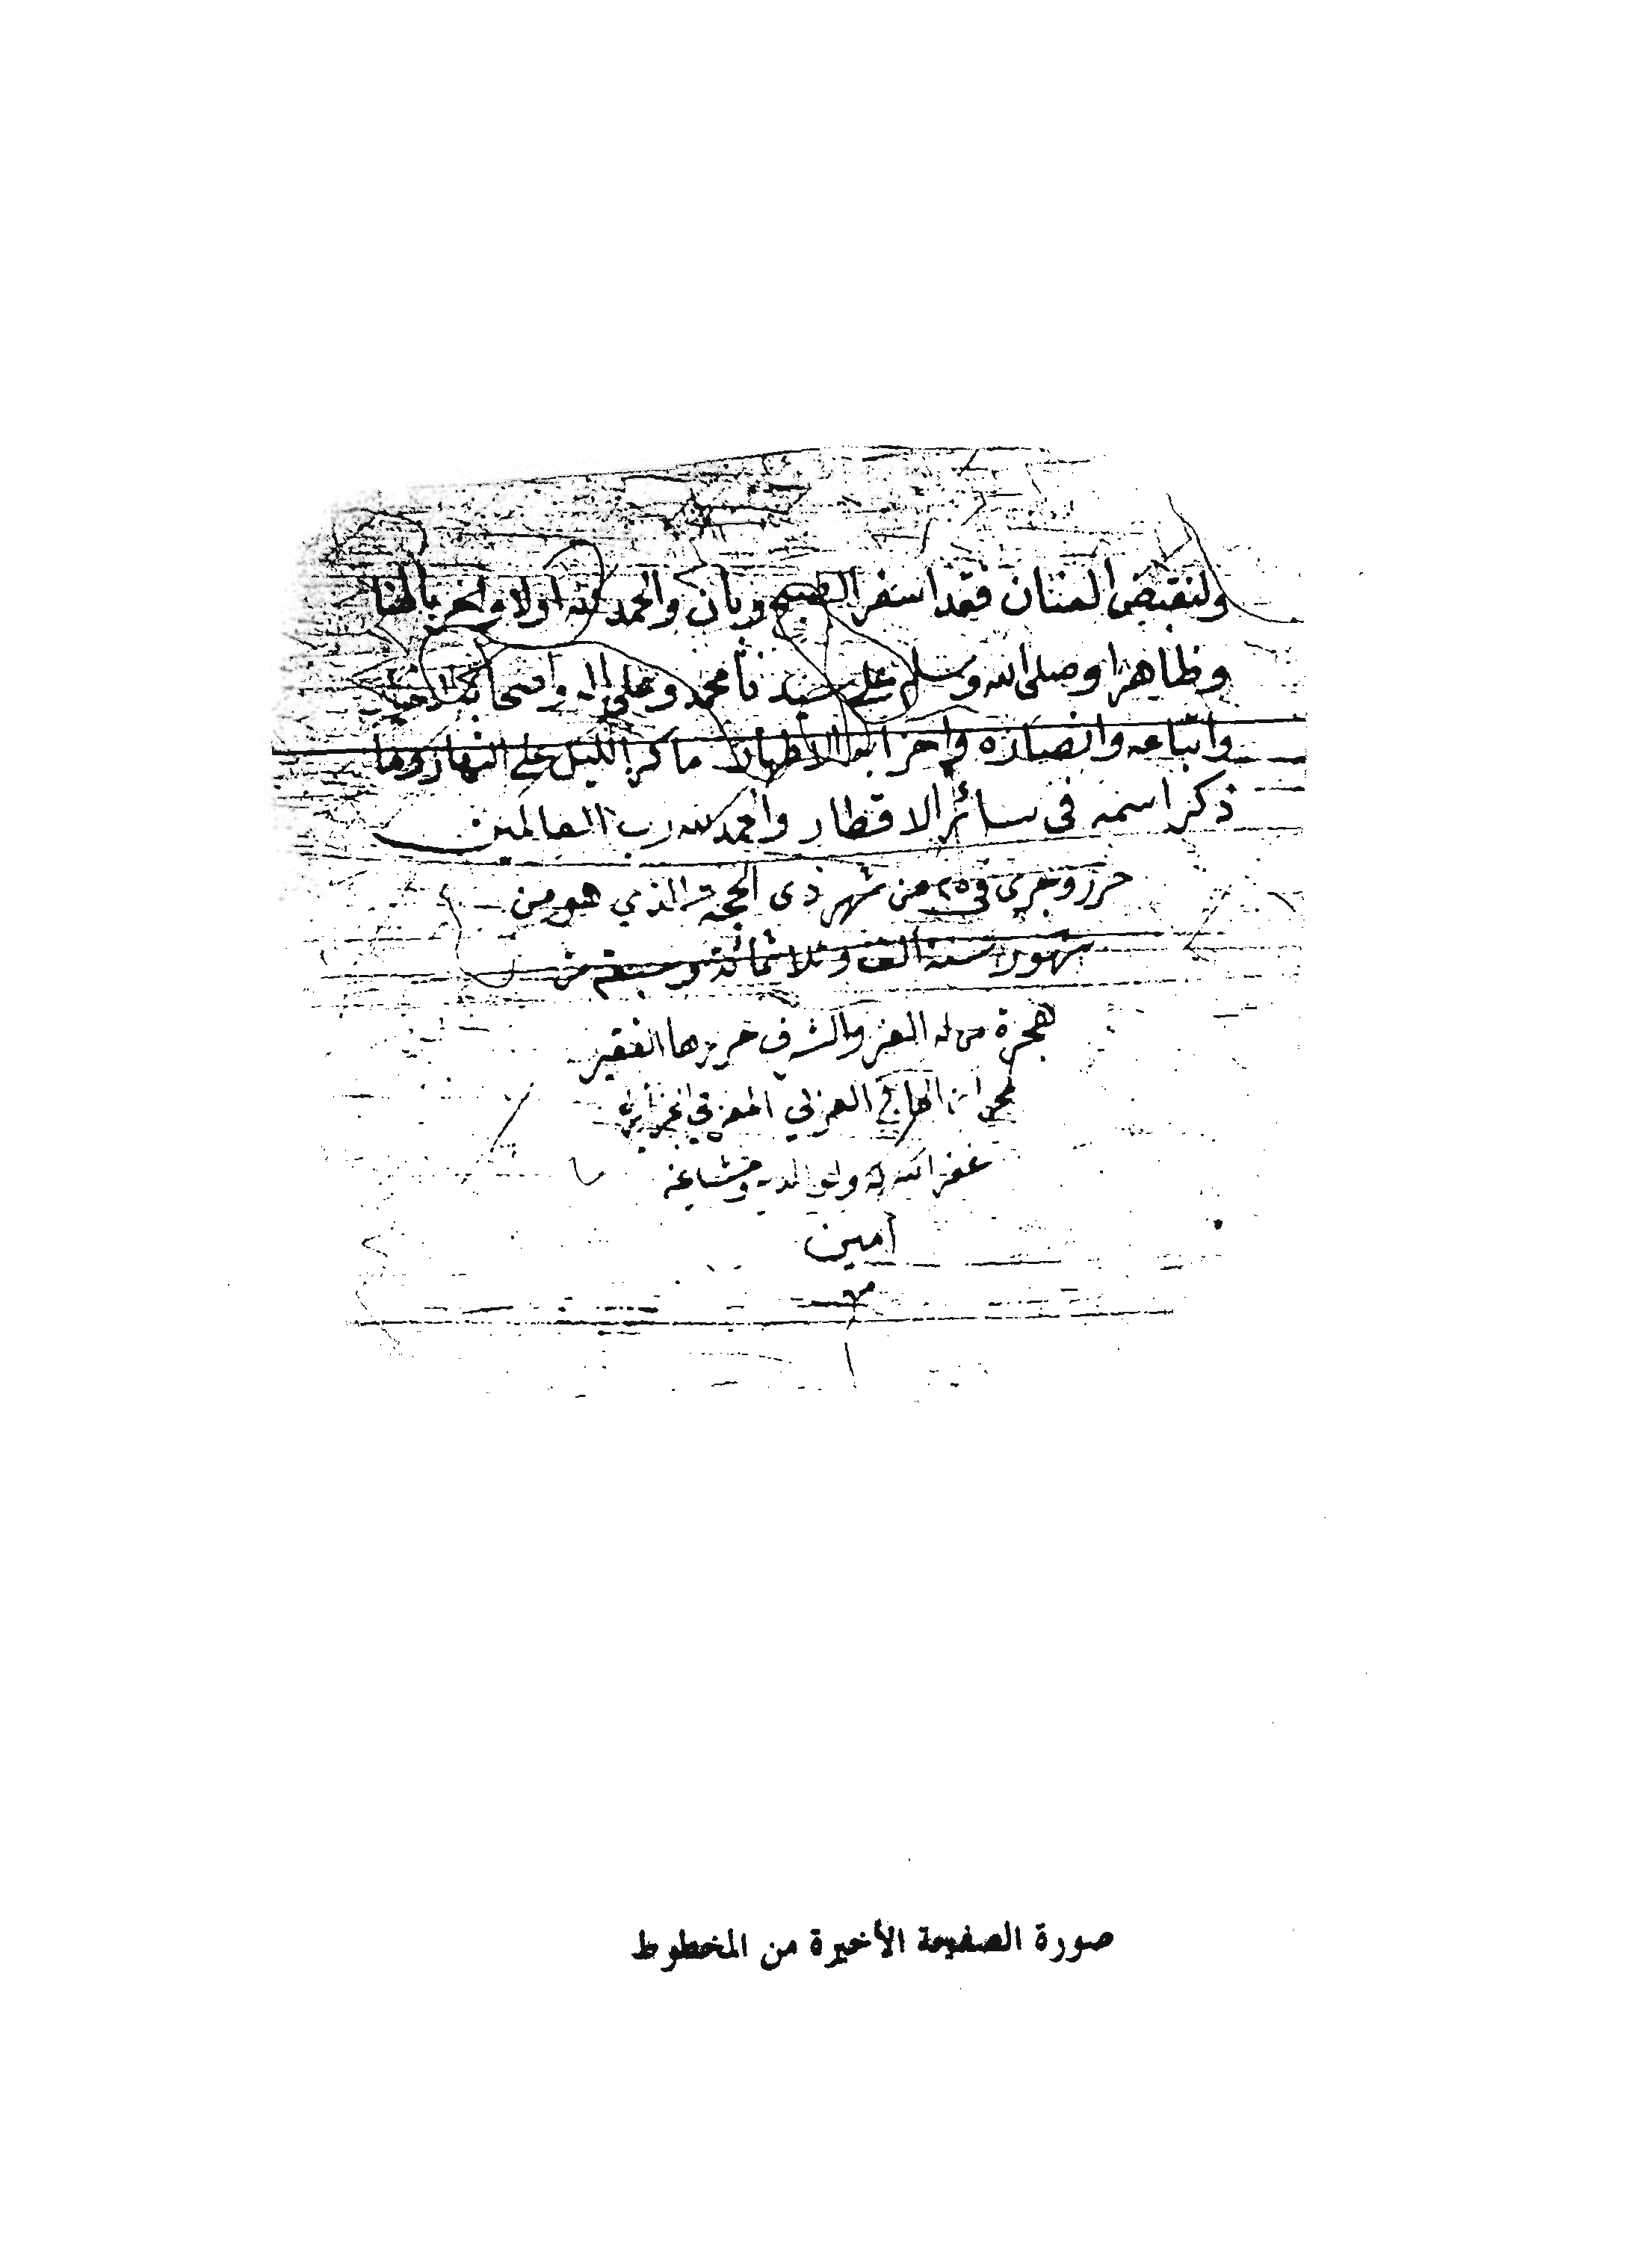 ولنقبض العنان فقد اسفر الصبح وبان والحمد لله اولا واخر باطنا
وظاهرا وصلى الله وسلم على سيدنا محمد وعلى اله واصحابه الاخيار
واتباعه وانصاره واحزابه الاطهار ما كر الليل على النهار وما
ذكر اسمه فى سائر الاقطار والحمد لله رب العالمين
حرر وجرى فى ٢٥ من شهر ذى الحجة الذي هو من
شهور سنة الف وثلاثمائة من
هجرة من له العز والشرف حررها الفقير
الحاج العربي
غفر الله له ولوالديه ومشايخه
أمين
صورة الصفيحة الأخيرة من المخطوط